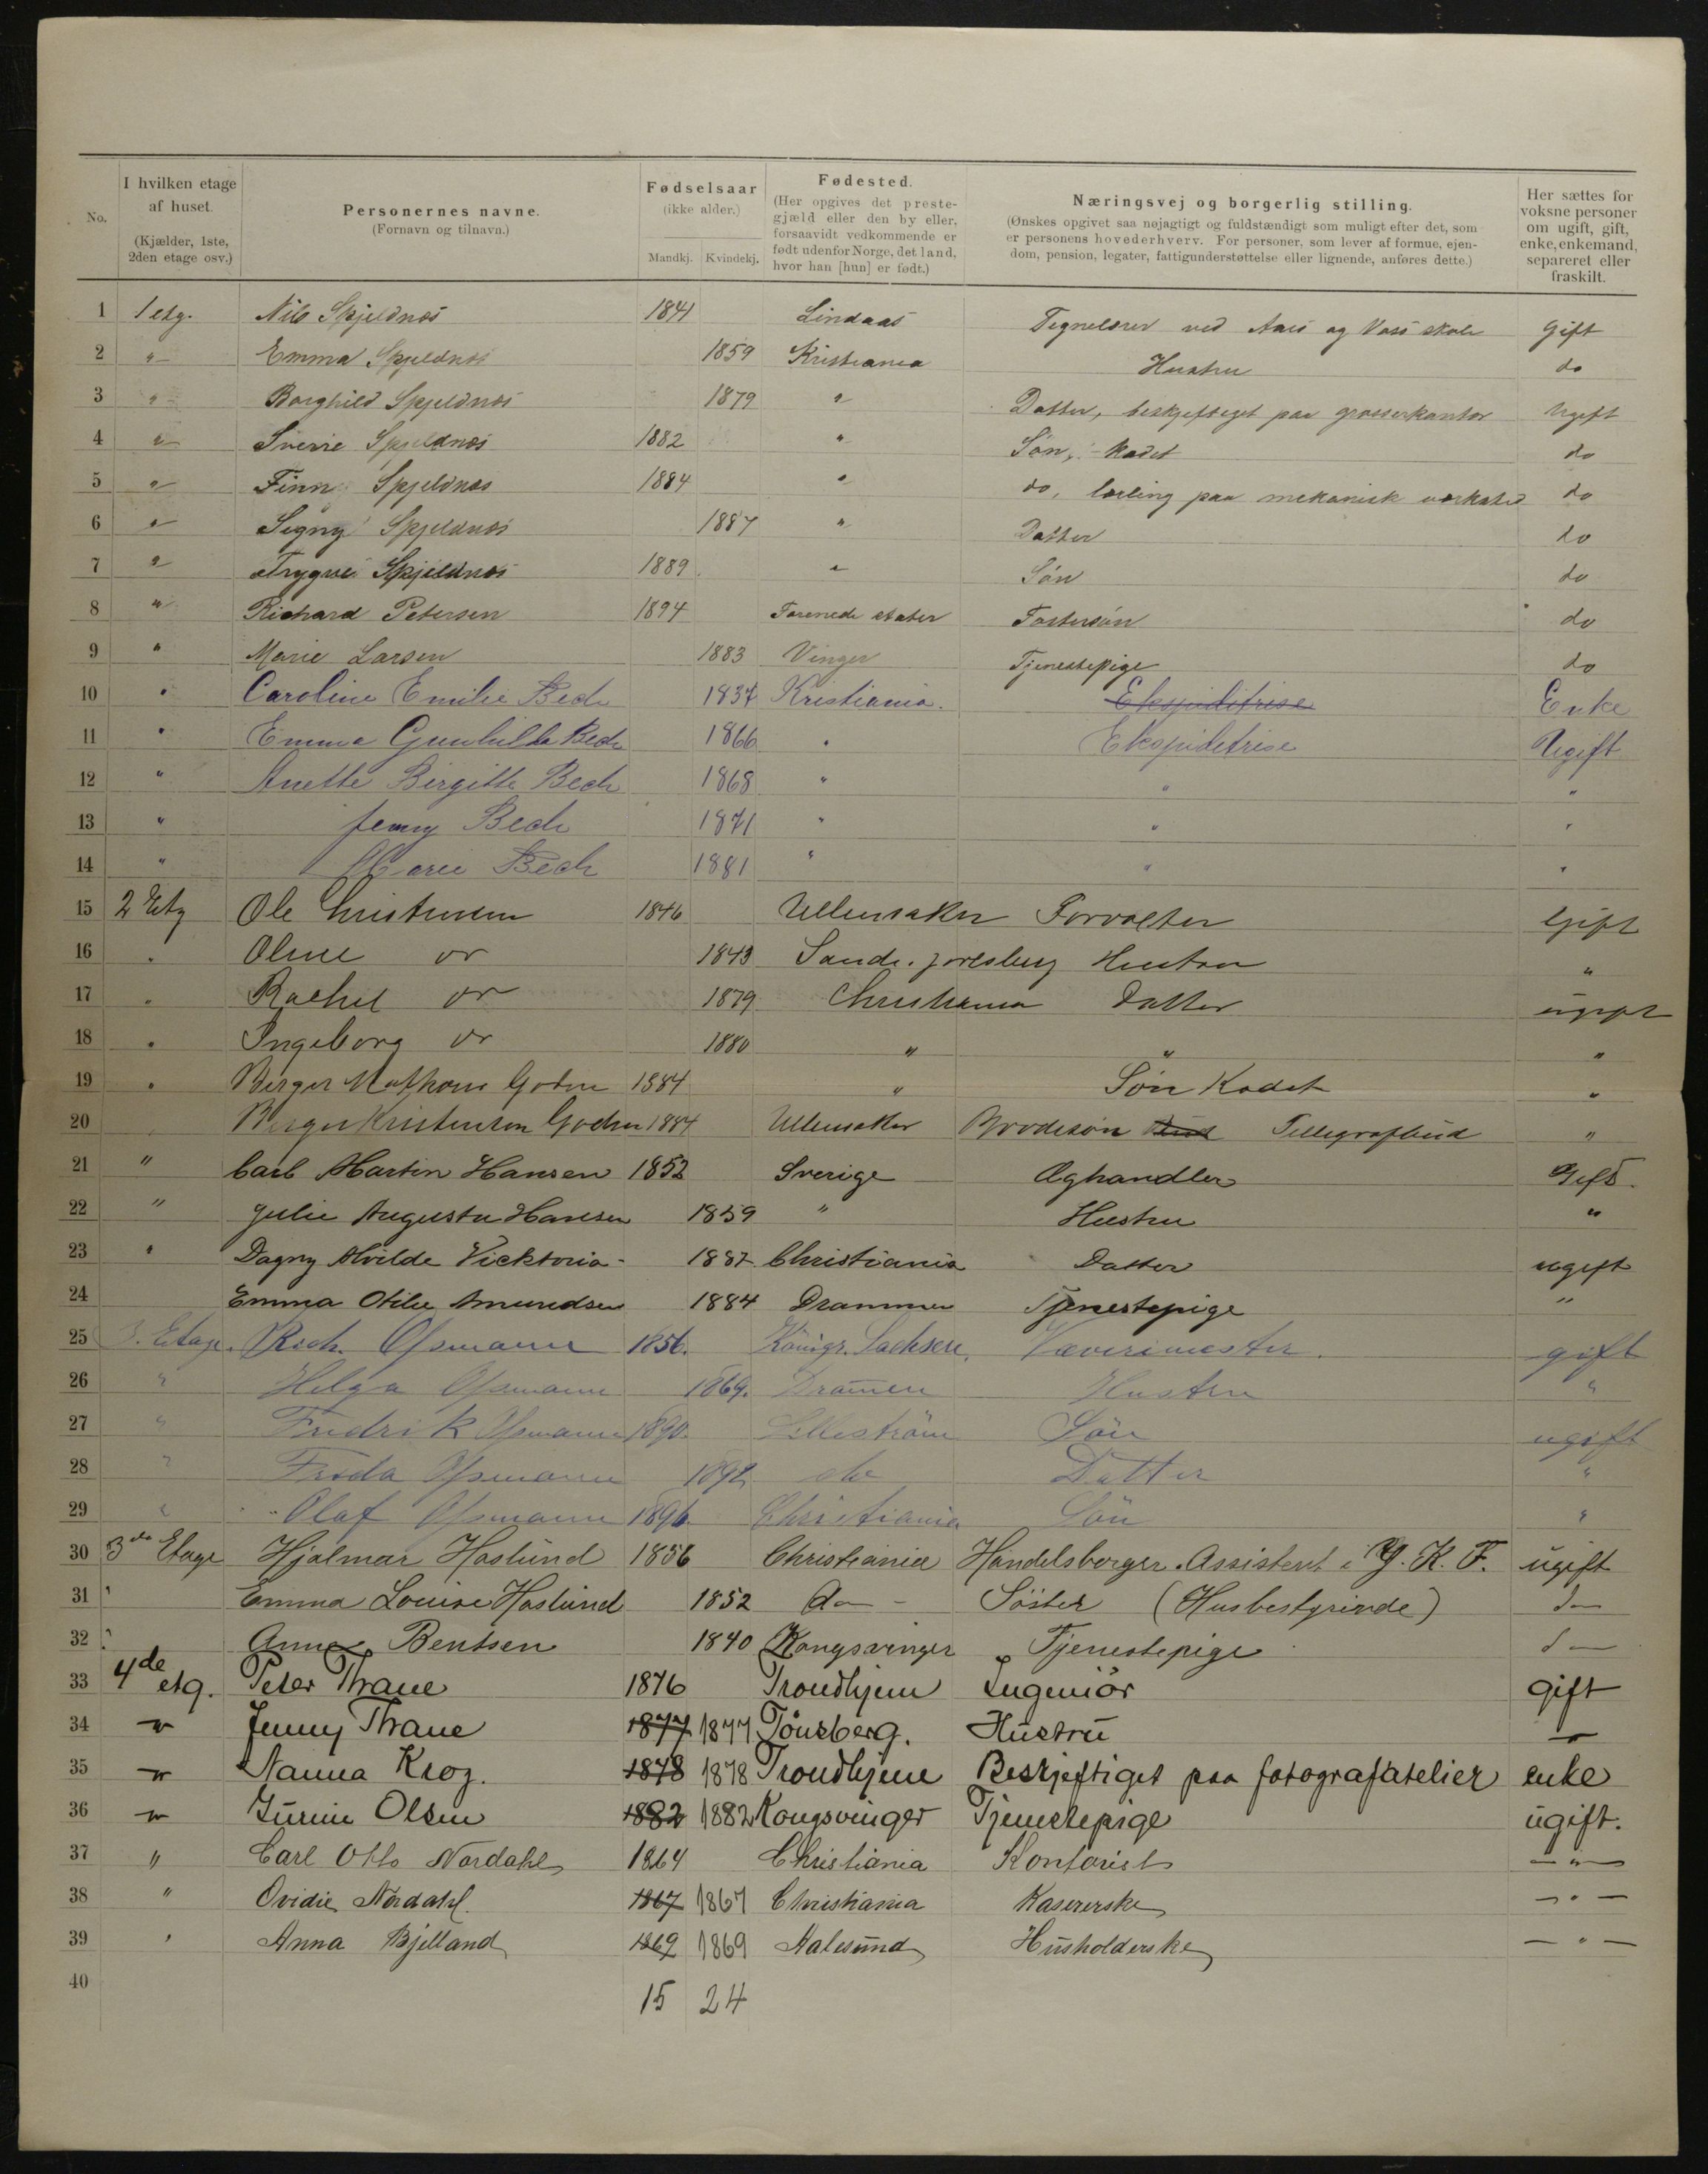 No.
I hvilken etage
af huset.
(Kjælder, 1ste,
2den etage osv.)
Personernes navne.
(Fornavn og tilnavn.)
Fødselsaar
(ikke alder.)
Mandkj. Kvindekj.
Fødested.
(Her opgives det preste-
gjæld eller den by eller,
forsaavidt vedkommende er
født udenfor Norge, det land,
hvor han [hun] er født.)
Næringsvej og borgerlig stilling.
(Ønskes opgivet saa nøjagtigt og fuldstændigt som muligt efter det, som
er personens hovederhverv. For personer, som lever af formue, ejen-
dom, pension, legater, fattigunderstøttelse eller lignende, anføres dette.)
Her sættes for
voksne personer
om ugift, gift,
enke, enkemand,
separeret eller
fraskilt.
1 1 etg. Nils Spjeldnæs 1841 Lindaas Tegnelærer ved Aars og Voss skole Gift
2 " Emma Spjeldnæs 1859 Kristiania Hustru do
3 " Borghild Spjeldnæs 1879 " Datter, beskjeftiget paa grosserkontor Ugift
4 " Sverre Spjeldnæs 1882 " Søn, Kadet do
5 " Finn Spjeldnæs 1884 " do, lærling paa mekanisk verksted do
6 " Signy Spjeldnæs 1887 " Datter do
7 " Trygve Spjeldnæs 1889 " Søn do
8 " Richard Petersen 1894 Forenede stater Fostersøn do
9 " Marie Larsen 1883 Vinger Tjenestepige do
10 " Caroline Emilie Bech 1837 Kristiania. Ekspiditrise Enke
11 " Emma Gunhilda Bech 1866 " Ekspiditrise Ugift
12 " Anette Birgitte Bech 1868 " " "
13 " Jenny Bech 1871 " " "
14 " Marie Bech 1881 " " "
15 2 Etg Ole Christensen 1846 Ullensaker Forvalter Gift
16 " Oline 1843 Sande. Jarlsberg Hustru "
17 " Rachel 1879 Christiania Datter ugift
18 " Ingeborg 1880 " " "
19 " Birger 1884 " Søn Kadet "
20 Birger Kristensen 1884 Ullensaker Brodesøn Bud Tellegrafbud "
21 " Carl Martin Hansen 1852 Sverige Æghandler Gift.
22 " Julie Augusta Hansen 1859 " Hustru "
23 " Dagny Alvilde Vicktoria - 1887 Christiania Datter ugift
24 Emma Otilie Amundsen 1884 Drammen Tjenestepige "
25 3. Etage. Rich. Ossmann 1856. Königr. Sachsen. Væverimester. gift
26 " Helga Ossmann 1869. Dram̄en Hustru "
27 " Fredrik Ossmann 1890. Lilleström Sön ugift
28 " Frida Ossmann 1892 do Datter "
29 " Olaf Ossmann 1896. Christiania Sön "
30 3die Etage Hjalmar Haslund 1856 Christiania Handelsborger. Assistent i K. F. ugift
31 " Emma Louise Haslund 1852 do - Söster (Husbestyrinde) do
32 " Anne Bentsen 1840 Kongsvinger Tjenestepige do
33 4de etg. Peter Thrane 1876 Trondhjem Ingeniör gift
34 " Jenny Thrane 1877 1877 Tönsberg. Hustru "
35 " Nanna Krog. 1878 1878 Trondhjem Beskjeftiget paa fotografatelier enke
36 " Olsen 1882 1882 Kongsvinger Tjenestepige ugift.
37 " Carl Otto Nordahl 1864 Christiania Kontorist - " -
38 " Ovidie Nordahl. 1867 1867 Christiania Kasererske - " -
39 " Anna Bjelland 1869 1869 Aalesund Husholderske - " -
40 15 24